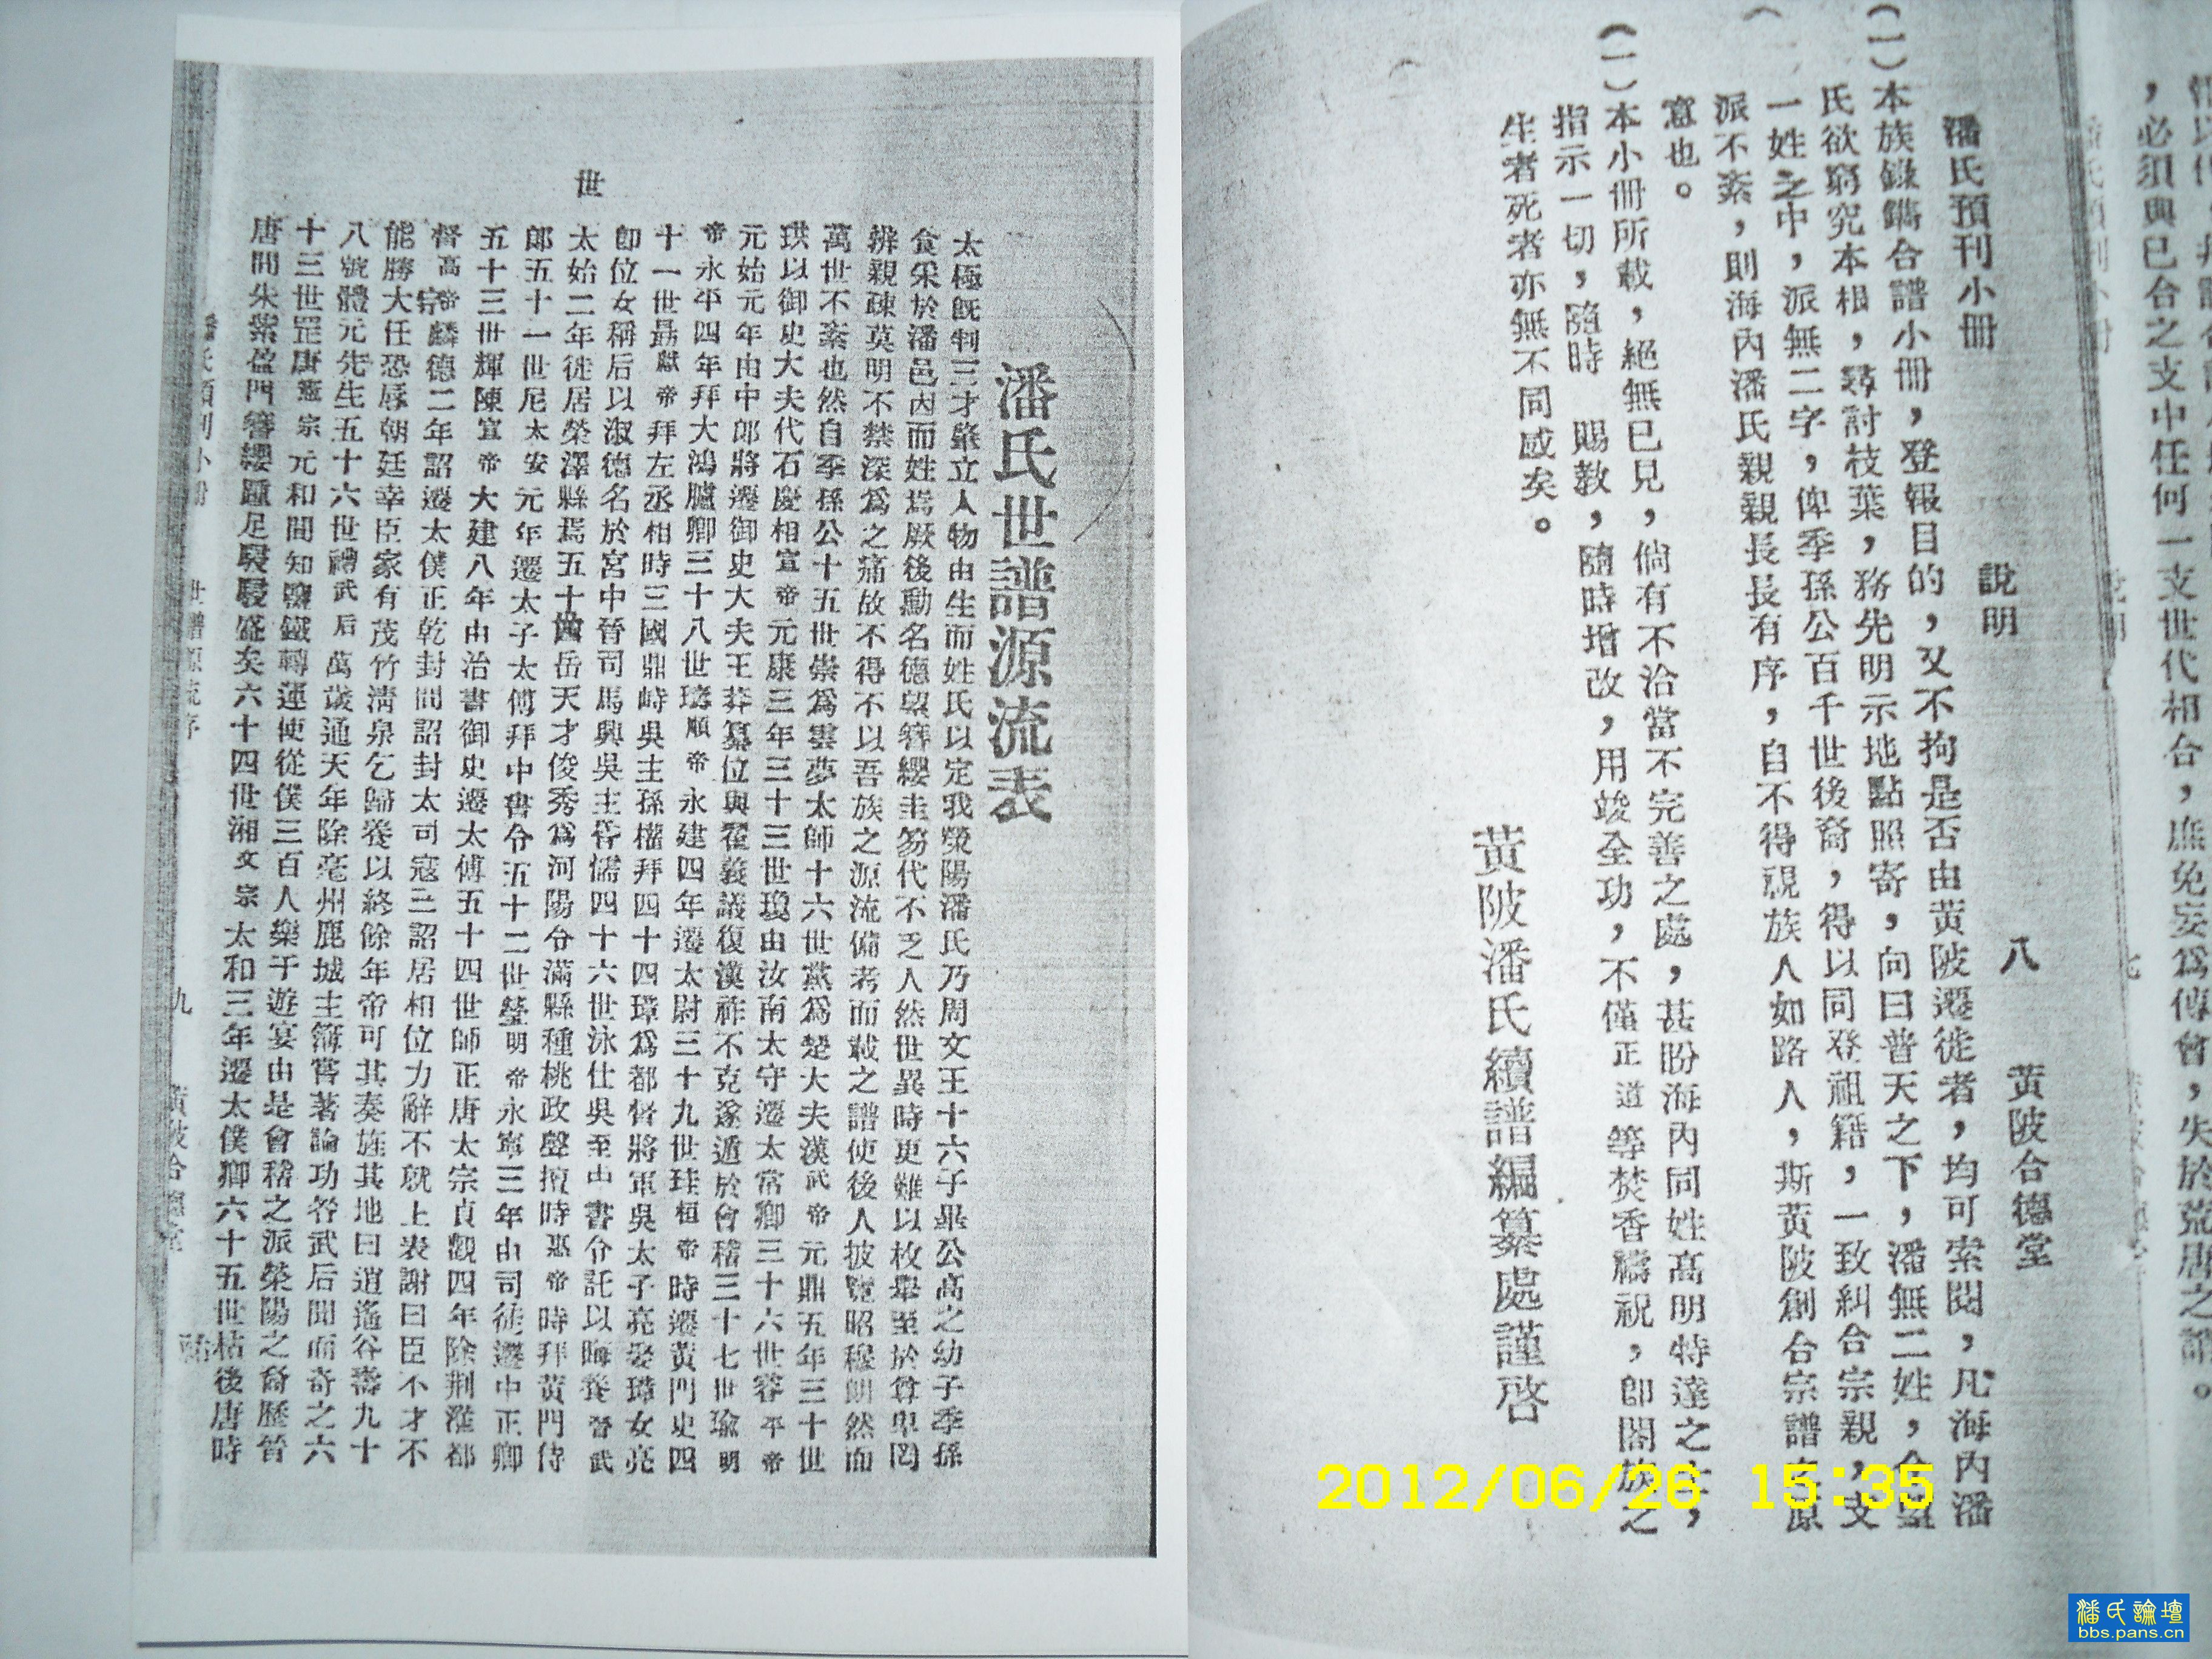 潘氏預刊小冊 說明 八 黃陂合德堂
(一)本族錄鐫合譜小冊，登報目的，又不拘是否由黃陂遷徙者，均可索閱，凡海內潘
氏欲窮究本根，尋討枝葉，務先明示地點照寄，向曰普天之下，潘無二姓，今
一姓之中，派無二字，俾季孫公百千世後裔，得以同登祖籍，一致糾合宗親，支
派不紊，則海內潘氏親親長長有序，自不得視族人如路人，斯黃陂創合宗譜之原
意也。
(一)本小冊所載，絕無已見，倘有不洽當不完善之處，甚盼海內同姓高明特達之士，
指示一切，隨時 賜教，隨時增改，用竣全功，不僅正道等焚香禱祝，即閤族之
生者死者亦無不同感矣。
黃陂潘氏續譜編纂處謹啓
，必須與已合之支中任何一支世代相合，庶免妄為傅會，失於荒唐之誚。
潘氏世譜源流表
太極旣判三才肇立人物由生而姓氏以定我滎陽潘氏乃周文王十六子畢公高之幼子季孫
食采於潘邑因而姓焉厥後勳名德望簪纓圭笏代不乏人然世異時更難以枚舉至於尊卑罔
辨親疎莫明不禁深為之痛故不得不以吾族之源流備考而載之譜使後人披覽昭穆朗然而
萬世不紊也然自季孫公十五世崇為雲夢太師十六世黨為楚大夫漢武帝元鼎五年三十世
珙以御史大夫代石慶相宣帝元康三年三十三世瓊由汝南太守遷太常卿三十六世容平帝
元始元年由中郎將遷御史大夫王莽纂位與翟義議復漢祚不克遂遁於會稽三十七世瑜明
帝永平四年拜大鴻臚卿三十八世璁順帝永建四年遷太尉三十九世珪桓帝時遷黃門史四
十一世勗獻帝拜左丞相時三國鼎峙吳主孫權拜四十四璋為都督將軍吳太子亮娶璋女亮
卽位女稱后以淑德名於宮中晉司馬興吳主昏儒四十六世泳仕吳至中書令託以晦養晉武
太始二年徙居滎澤縣焉五十四岳天才俊秀為河陽令滿縣種桃政聲擅時惠帝時拜黃門侍
郎五十一世尼太安元年遷太子太傅拜中書令五十二世瑩明帝永寧三年由司徒遷中正卿
五十三世輝陳宣帝大建八年由治書御史遷太傅五十四世師正唐太宗貞觀四年除荆淮都
督高宗帝麟德二年詔遷太僕正乾封間詔封太司寇三詔居相位力辭不就上表謝曰臣不才不
能勝大任恐辱朝廷幸臣家有茂竹淸泉乞歸養以終餘年帝可其奏旌其地曰逍遙谷壽九十
八號體元先生五十六世禮武后萬歲通天年除亳州鹿城主簿嘗著論功咎武后聞而奇之六
十三世罡唐憲宗元和間知鹽鐵轉運使從僕三百人樂于遊宴由是會稽之派滎陽之裔歷晉
唐間朱紫盈門簪纓踵足駸駸盛矣六十四世湘文宗太和三年遷太僕卿六十五世祜後唐時
世
九
2012/06/26 15:35
潘氏論壇
bbs.pans.cn